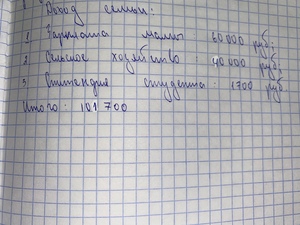 Доход семьи:
1 Зарплата мамы 60000 руб;
2 Сельское хозяйство: 40 000 руб;
3 Стипендия студента: 1700 руб
Итого: 101 700